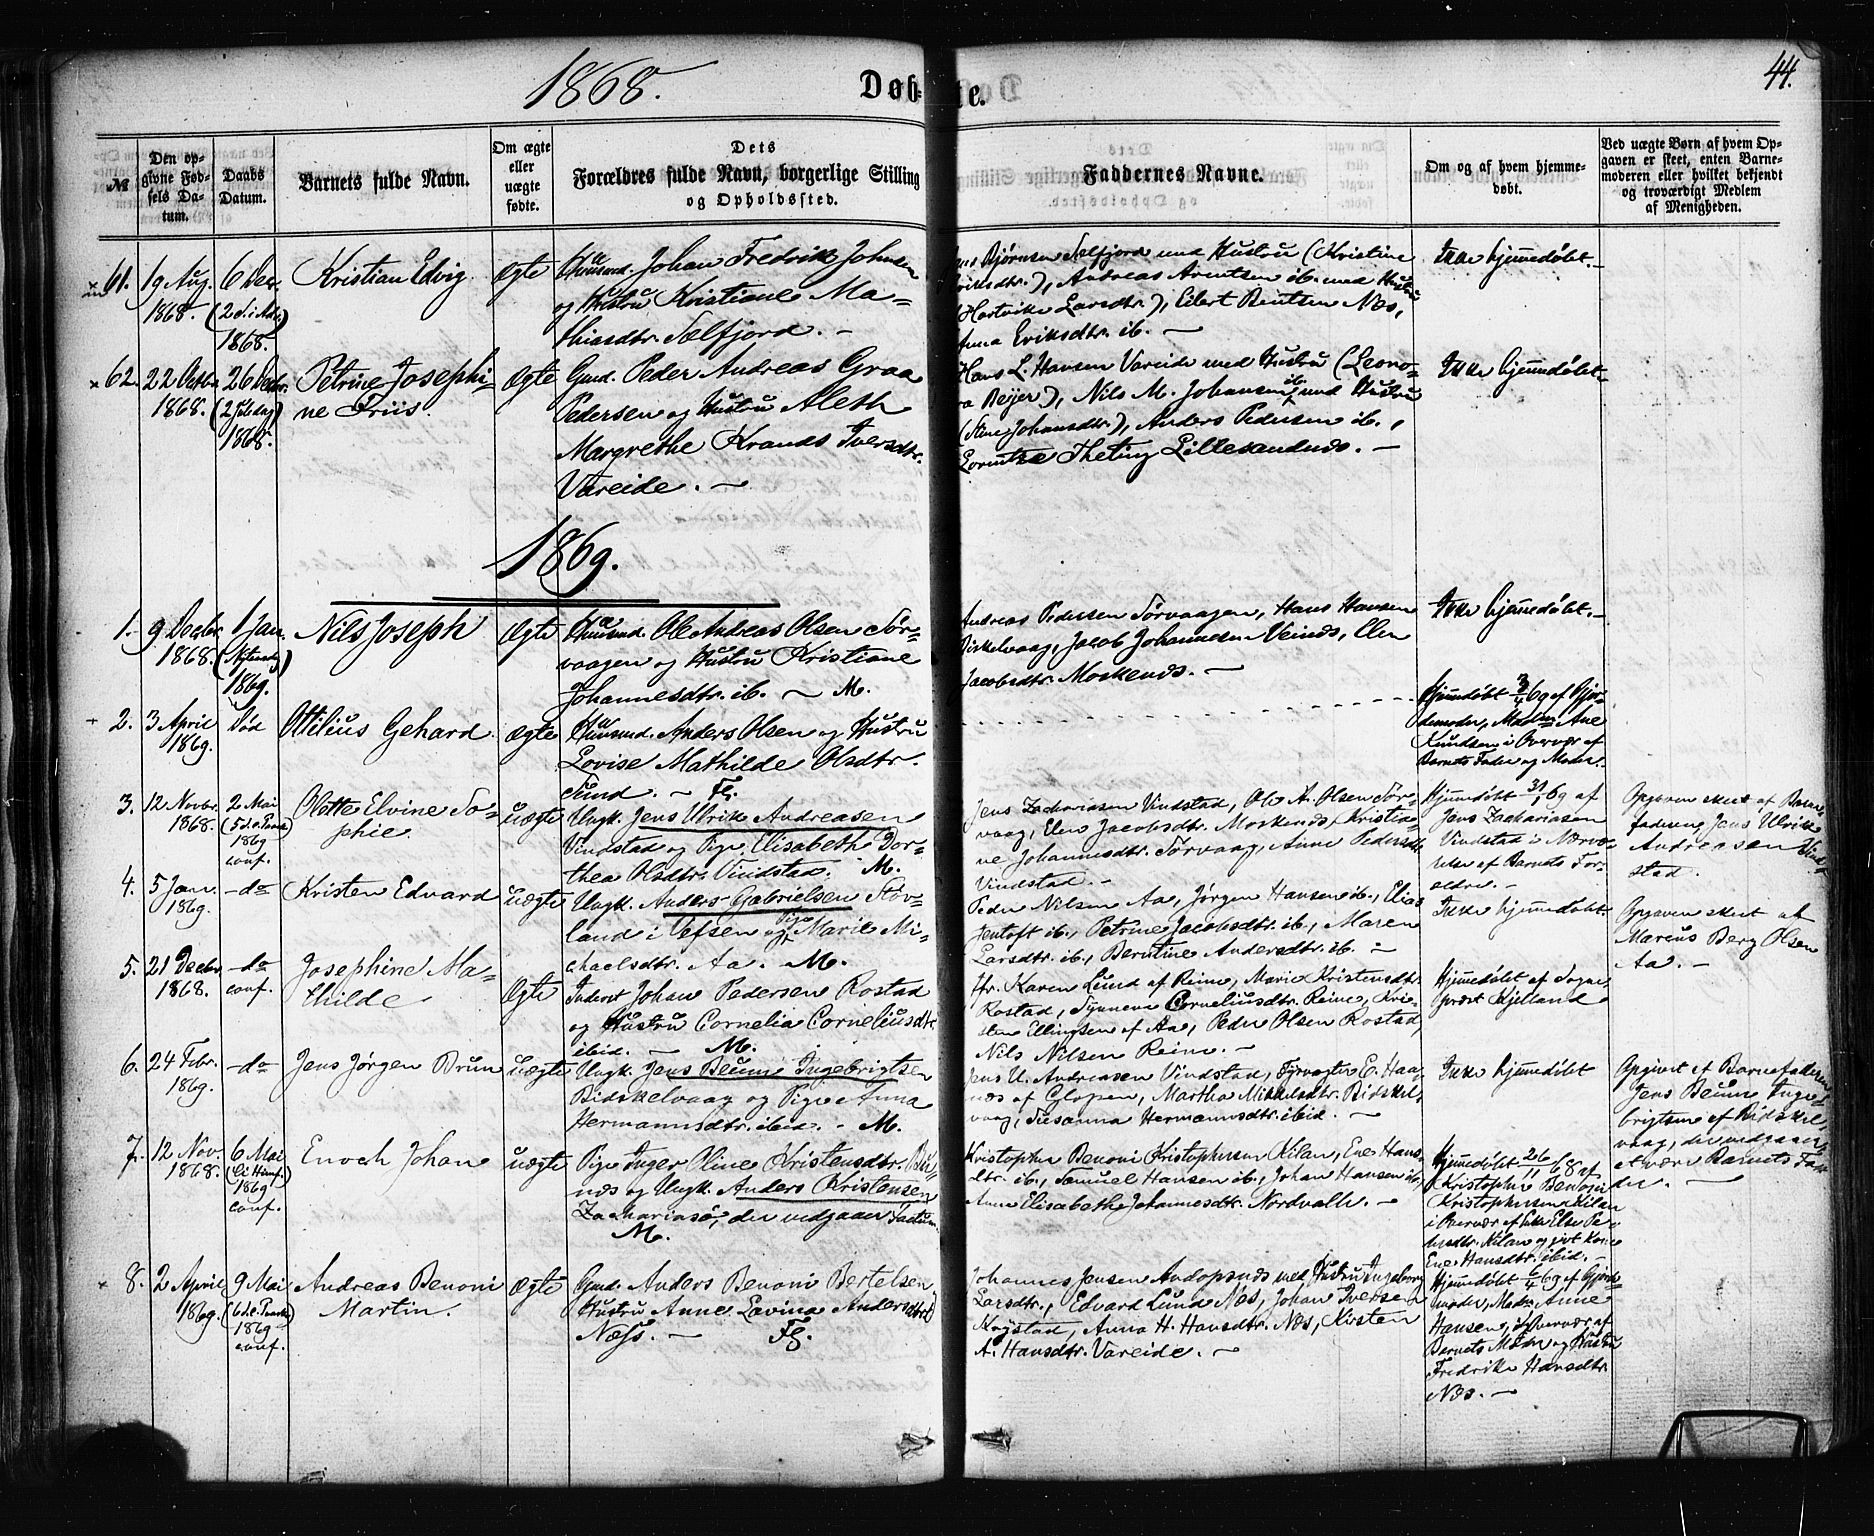 1868.
Døbte.
44.
№
Den opgivne Fødsels Datum.
Daabs Datum.
Barnets fulde Navn.
Om ægte eller uægte fødte.
Dets Forældres fulde Navn, borgerlige Stilling og Opholdssted.
Faddernes Navne.
Om og af hvem hjemmedøbt.
Ved uægte Børn af hvem Opgaven er skeet, enten Barnemoderen eller hvilket bekjendt og troværdigt Medlem af Menigheden.
61. 19 Aug. 1868. 6 Dec. (2 S. i Adv.) 1868.
Kristian Edvig
Ægte
Huusmd. Johan Fredrik Johnsen
og Hustru Kristiane Ma=
thiasdtr. Selfjord. –
Bjørnsen Selfjord med Hustru (Kristine
Eriksdtr.), Andreas Arntsen ib. med Hustru
(Hartvike Larsdtr.), Eilert Bentsen Næs,
Anna Eriksdtr. ib. –
Ikke hjemmedøbt. –
62. 22 Octbr. 1868. 26 Decbr. (2 Juledag) 1868.
Petrine Josephi=
ne Friis.
Ægte
Gmd. Peder Andreas Graa
Pedersen og Hustru Aleth
Margrethe Krands Iversdtr.
Vareide. –
Hans L. Hansen Vareide med Hustru (Leono=
ra Beijer), Nils M. Johansen ib. med Hustru
(Stine Johansdtr.), Anders Pedersen ib.,
Lorentze Theting Lillesandnes. –
Ikke hjemmedøbt. –
1869.
1. 9 Decbr. 1868. 1 Jan. (Nytaarsdag) 1869.
Nils Joseph
Ægte
Huusmd. Ole Andreas Olsen Sør=
vaagen og Hustru Kristiane
Johannesdtr. ib. – M.
Andreas Pedersen Sørvaagen, Hans Hansen
Birkelvaag, Jacob Johannesen Veines, Elen
Jacobsdtr. Moskenes. –
Ikke hjemmedøbt. –
2. 3 April 1869. Død
Ottilius Gehard.
Ægte
Huusmd. Anders Olsen og Hustru
Lovise Mathilde Olsdtr.
Sund. – Fl.
Hjemmedøbt 3/4 69 af Gjor=
demoder, Madm Ane
Knudsen i Overvær af
Barnets Fader og Moder.
3. 12 Novbr. 1868. 2 Mai (5 S. e. Paaske) 1869 conf.
Olette Elvine So=
phie.
uægte
Ungk. Jens Ulrik Andreasen
Vindstad og Pige Elisabeth Dor=
thea Olsdtr. Vindstad. M.
Jens Zachariasen Vindstad, Ole A. Olsen Sør=
vaag, Elen Jacobsdtr. Moskenes, Kristia=
ne Johannesdtr. Sørvaag, Anne Pedersdtr.
Vindstad. –
Hjemmedøbt 31/1 69 af
Jens Zachariasen
Vindstad i Nærvæ=
relse af Barnets For=
ældre. –
Opgaven skeet af Barne=
faderen, Jens Ulrik
Andreasen Vind=
stad.
4. 5 Jan. 1869. – do
Kristen Edvard
uægte
Ungk. Anders Gabrielsen Stov=
land i Vefsen og Pige Marie Mi=
chaelsdtr. Aa. – M.
Peder Nilsen Aa, Jørgen Hansen ib., Elias
Jentoft ib., Petrine Jacobsdtr. ib., Maren
Larsdtr. ib., Berntine Andersdtr. ib. –
Ikke hjemmedøbt.
Opgaven skeet af
Marcus Berg Olsen
Aa. –
5. 21 Decbr. 1868. – do conf.
Josephine Ma=
thilde
Ægte
Inderst Johan Pedersen Rostad
og Hustru Cornelia Corneliusdtr.
ibid. – M.
Fr. Karen Lund af Reine, Marie Kristensdtr.
Rostad, Synneve Corneliusdtr. Reine, Kri=
sten Ellingsen af Aa, Peder Olsen Rostad,
Nils Nilsen Reine. –
Hjemmedøbt af Sogne=
præst Kjelland
6. 24 Febr. 1869. – do
Jens Jørgen Brun
uægte
Ungk. Jens Beune Ingebrigtsen
Bidskelvaag og Pige Anna
Hermannsdtr. ibid. – M.
Jens U. Andreasen Vindstad, Fyrvogter E. Haa=
næs af Glopen, Martha Mikkelsdtr. Bidskel=
vaag, Susanna Hermannsdtr. ibid. –
Ikke hjemmedøbt
Opgivet af Barnefaderen
Jens Beune Inge=
brigtsen af Bidskel=
vaag, der vedgaaer
at være Barnets Fa=
der. –
7. 12 Nov. 1868. 6 Mai (Chr. Himf.) 1869 conf.
Enoch Johan
uægte
Pige Inger Oline Kristensdtr. 
næs og Ungk. Anders Kristensen
Zachariasø, der vedgaaer Factum.
M.
Kristopher Benoni Kristophersen Kilan, Enes Hans=
dtr. ib., Samuel Hansen ib., Johan Hansen ib.,
Anne Elisabeth Johannesdtr. Nordvalle. –
Hjemmedøbt 26/11 68 af
Kristopher Benoni
Kristophersen Kilan
i Overvær af Enke Else Pe=
dersdtr. Kilan og gift Kone
Enes Hansdtr. ibid. –
8. 2 April 1869. 9 Mai (6 S. e. Paaske) 1869 conf.
Andreas Benoni
Martin.
Ægte
Gmd. Anders Benoni Bertelsen,
Hustru Anne Lavina Andersdtr.
Næss. – Fl.
Johannes Jensen Andopsnes med Hustru Ingeborg
Larsdtr., Edvard Lund Næs, Johan Iversen
Krystad, Anna H. Hansdtr. Næs, Kirsten
A. Hansdtr. Vareide. –
Hjemmedøbt 6/4 69 af Gjord=
moder, Madm Anne
Hansen, i Overvær af
Barnets Moder og Hustru
Fredrike Hansdtr.
Næs. –